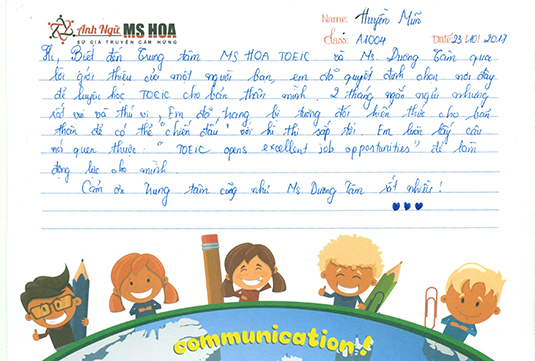 Anh Ngữ MS HOA
SỨ GIẢ TRUYỀN CẢM HỨNG
Name: Huyền Mũn
Class: A1004
Date: 23/10/2017
Hi, Biết đến Trung tâm MS HOA TOEIC và Ms. Dương Tâm qua
lời giới thiệu của một người bạn, em đã quyết định chọn nơi đây
để luyện học TOEIC cho bản thân mình. 2 tháng ngắn ngủi nhưng
rất vui và thú vị, Em đã trang bị tương đối kiến thức cho bản
thân để có thể "chiến đấu" với kì thi sắp tới. Em luôn lấy câu
nói quen thuộc: "TOEIC opens excellent job opportunities" để làm
động lực cho mình.
Cảm ơn Trung tâm cũng như Ms. Dương Tâm rất nhiều!
communication!